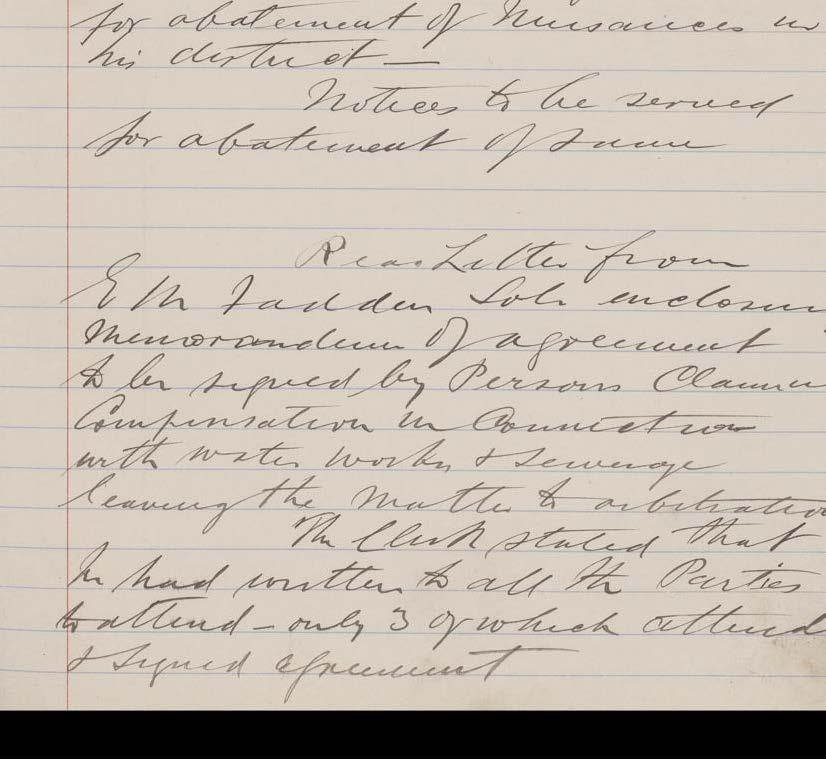 for abatement of Nuisances in
his district —
Notices to be served
for abatement of same
Read Letter from
E M Fadden Solr enclosin
Memorandum of agreement
to be signed by Persons Claimin
Compensation in Connection
with water works & Sewerage
leaving the matter to arbitration
The Clerk stated that
he had written to all the Parties
to attend - only 3 of which attend
& Signed agreement